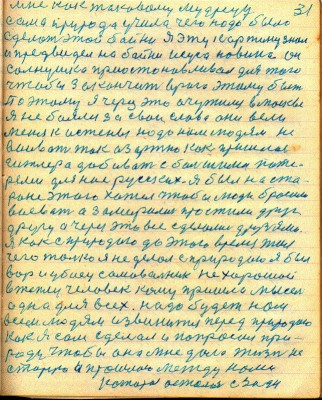 мне как таковому мудрецу 31
сама природа учила чего надо было
сделат этой байки Я эту картину знал
и предвидел на байки Исуса новина он
солнушко приостонавливал для того
чтобы закончит врага этому быт
Поэтому Я через это очутился в Москве
Я не болел за свои слова они вели
меня к истене надо нам людям не
воеват так азартно как пришлос
гитлера добиват с большими поте-
рями для нас русских. Я был на сто-
роне этого хотел чтобы люди бросили
воеват а замирилис простили друг
другу а через это все сделалис друзями.
Я как с природою до этого время жил
чего только я не делал с природою Я был
вор убийца самовольник нехороший
в жизни человек кому пришла мысел
одна для всех. надо будет нам
всем людям извинится перед природою
как Я сам сделал и попросил при-
роду чтобы она мне дала жизн не
старую и прошлою между нами
которая осталас сзади